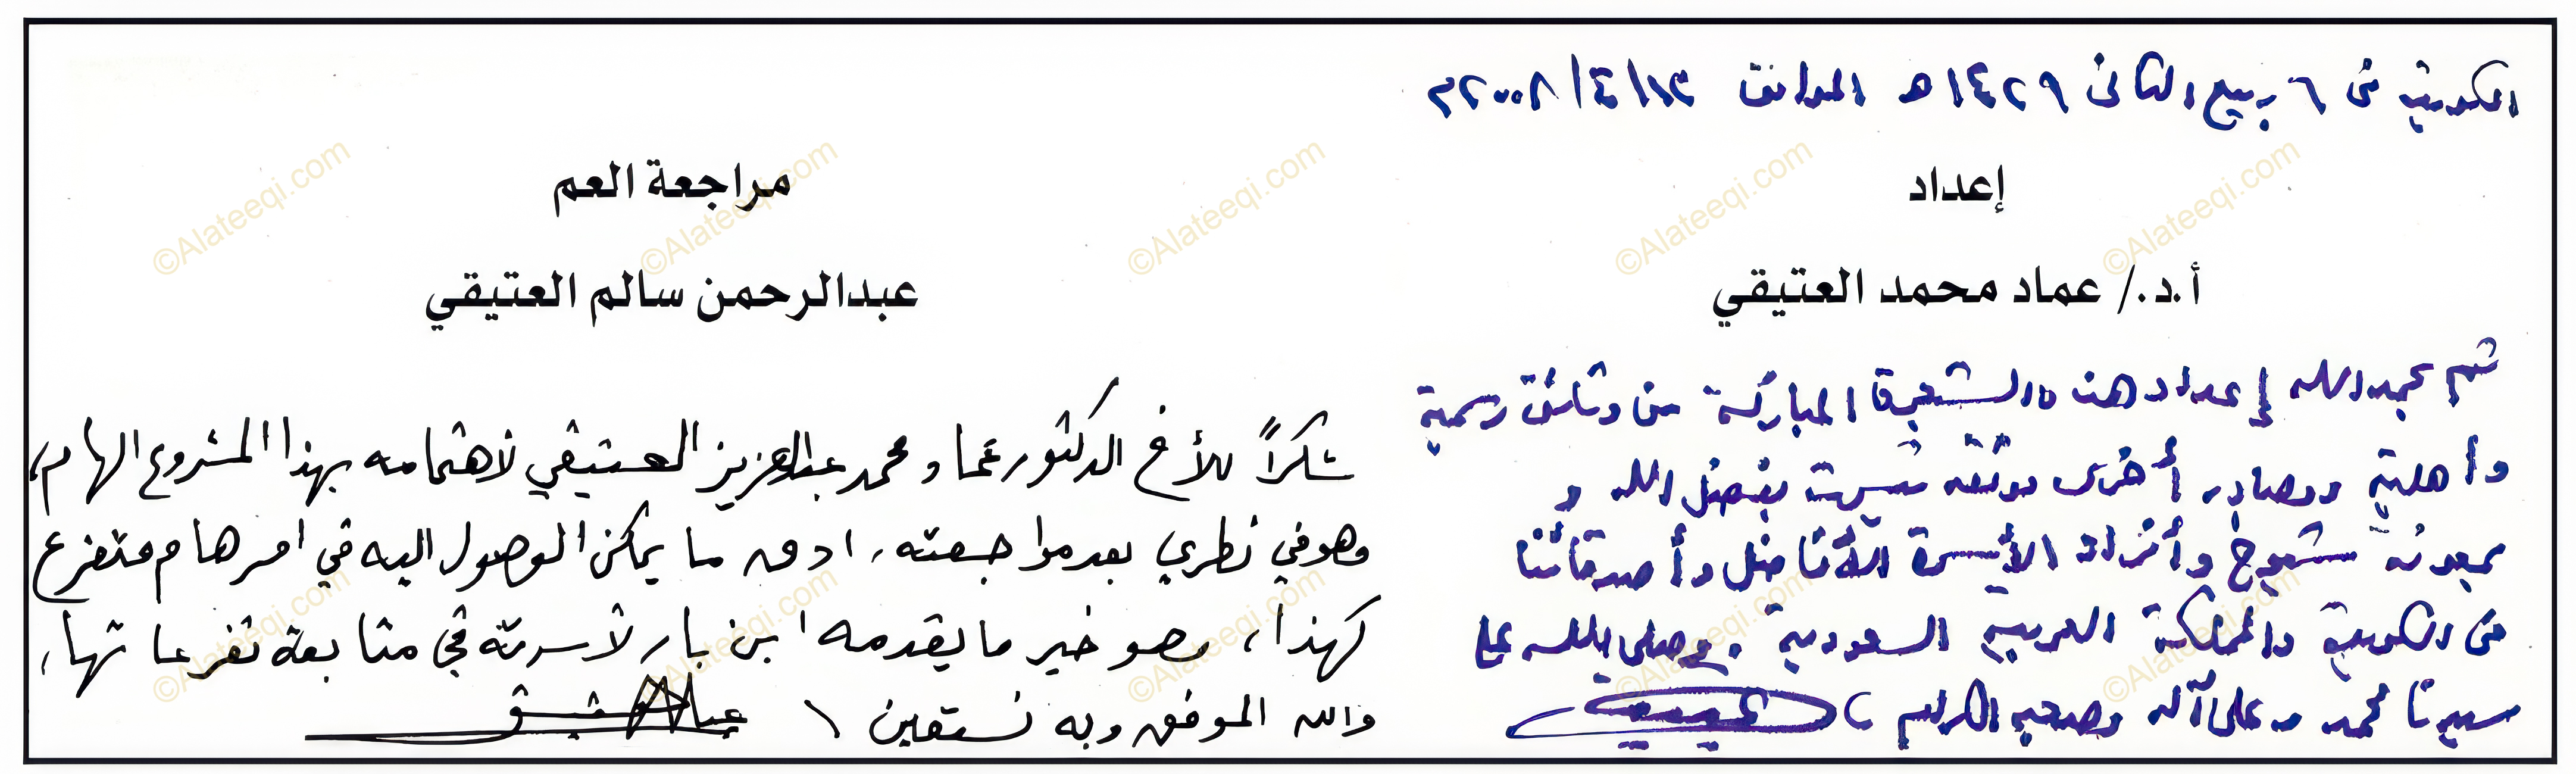 الكويت في ٦ ربيع الثاني ١٤٢٩هـ الموافق ١٢/٤/٢٠٠٨م
إعداد
أ.د./ عماد محمد العتيقي
تم بحمد الله إعداد هذه الشجرة المباركة من وثائق رسمية
وأهلية ومصادر أخرى موثقة تيسرت بفضل الله و
بمعونة شيوخ وأفراد الأسرة الأفاضل وأصدقائنا
في الكويت والمملكة العربية السعودية. وصلى الله على
سيدنا محمد وعلى آله وصحبه الكرام
مراجعة العم
عبدالرحمن سالم العتيقي
شكراً للأخ الدكتور عماد محمد عبدالعزيز العتيقي لاهتمامه بهذا المشروع الهام،
وهو في نظري بعد مراجعته، ادق ما يمكن الوصول اليه في امر هام متفرع
كهذا، وهو خير ما يقدمه ابن بار لأسرته في متابعة تفرعاتها،
والله الموفق وبه نستعين \
©Alateeqi.com ©Alateeqi.com ©Alateeqi.com ©Alateeqi.com ©Alateeqi.com
©Alateeqi.com ©Alateeqi.com ©Alateeqi.com ©Alateeqi.com ©Alateeqi.com